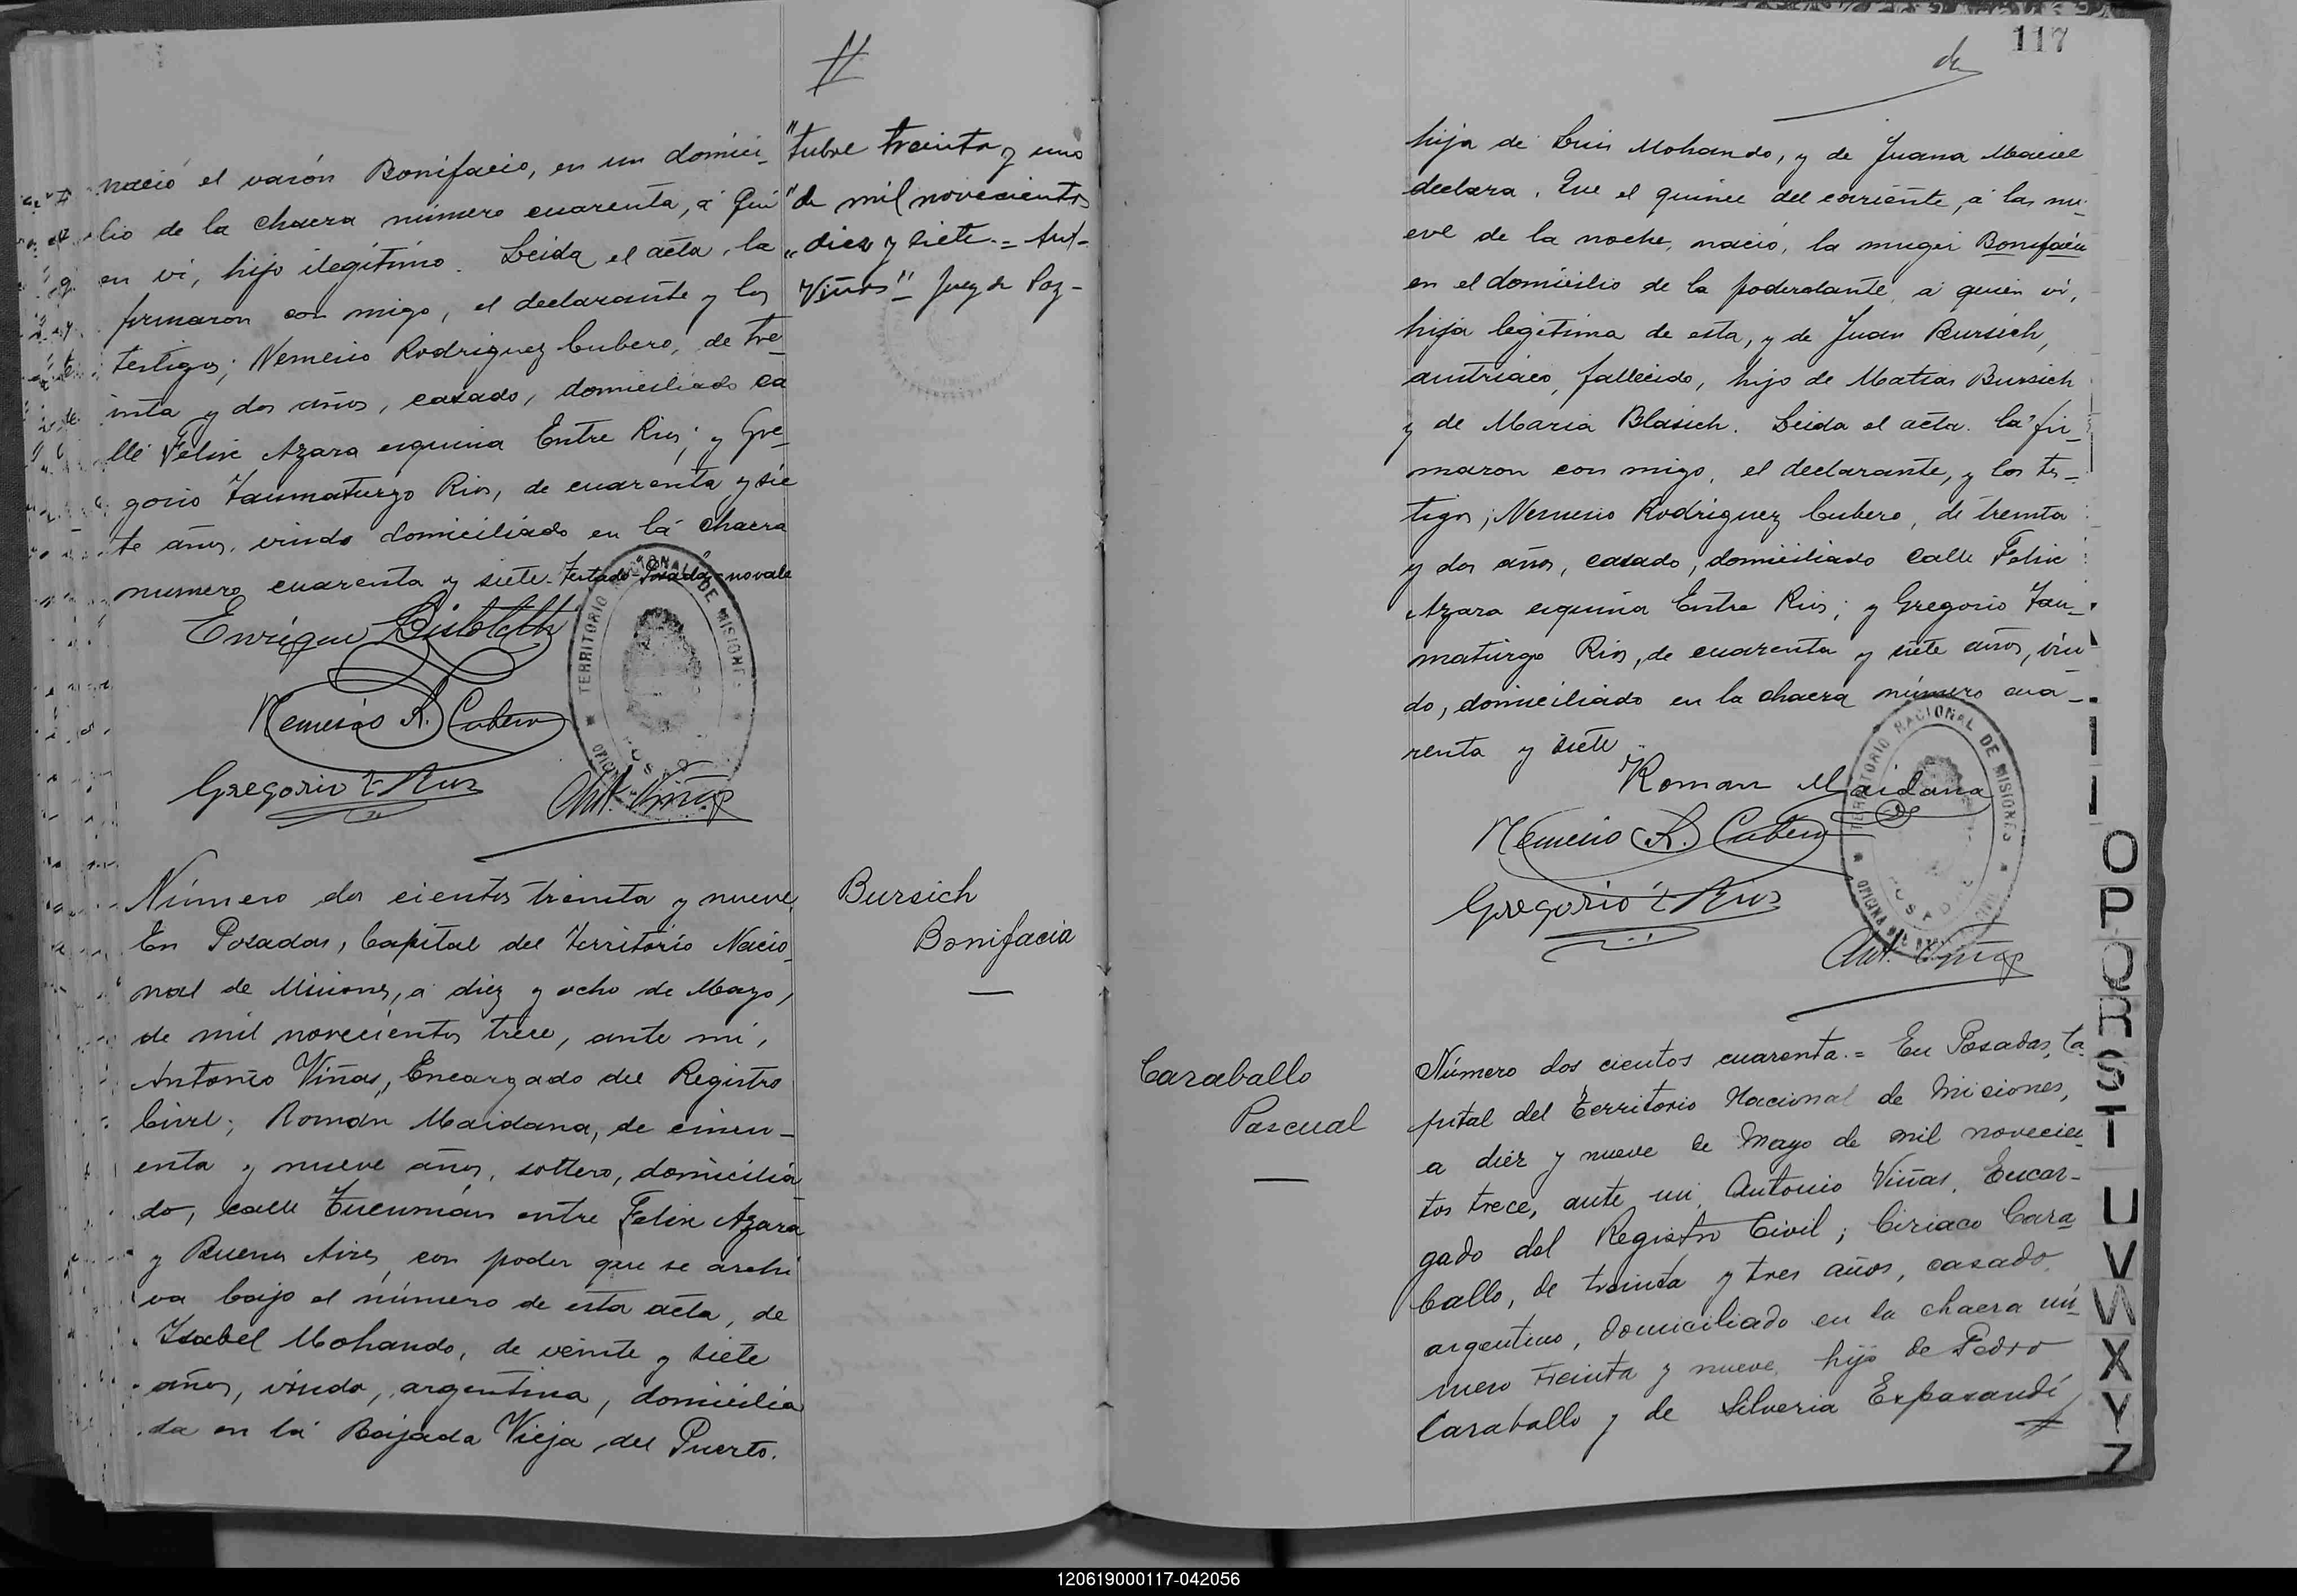 nació el varón Bonifacio, en un domici_
lio de la chacra número cuarenta, á qui
en ví, hijo ilegítimo. Leida el acta, la
firmaron con migo, el declarante y los
testigos; Nemesio Rodriguez Cubero, de tre_
inta y dos años, casado, domiciliado ca
lle Felix Azara esquina Entre Rios; y Gre_
gorio Taumaturgo Rios, de cuarenta y sie
te años, viudo domiciliado en la chacra
numero cuarenta y siete. Testado-Posadas-no vale
Enrique
Nemesio R. Cubero
Gregorio T. Rios
Ant. Viñas
TERRITORIO NACIONAL DE MISIONES
"tubre treinta y uno
"de mil novecientos
"diez y siete.= Ant-
Viñas" Juez de Paz-
Número dos cientos treinta y nueve.
En Posadas, Capital del Territorio Nacio_
nal de Misiones, a diez y ocho de Mayo,
de mil novecientos trece, ante mi,
Antonio Viñas, Encargado del Registro
Civil; Román Maidana, de cincu_
enta y nueve años, soltero, domicilia
do, calle Tucumán entre Felix Azara
y Buenos Aires, con poder que se archi
va bajo el número de esta acta, de
Isabel Mohando, de veinte y siete
años, viuda, argentina, domicilia
da en la Bajada Vieja del Puerto.
Bursich
Bonifacia
117
hija de Luis Mohando, y de Juana Maciel
declara. Que el quince del corriente, á las nu_
eve de la noche, nació, la muger Bonifacia
en el domicilio de la poderdante, a quien ví,
hija legítima de esta, y de Juan Bursich,
austriaco, fallecido, hijo de Matias Bursich
y de Maria Blasich. Leida el acta. la fir_
maron con migo, el declarante, y los tes_
tigos; Nemesio Rodriguez Cubero, de treinta
y dos años, casado, domiciliado calle Felix
Azara esquina Entre Rios; y Gregorio Tau_
maturgo Rios, de cuarenta y siete años, viu
do, domiciliado en la chacra número cua_
renta y siete
Roman Maidana
Nemesio R. Cubero
Gregorio T. Rios
Ant. Viñas
TERRITORIO NACIONAL DE MISIONES
POSADAS
Caraballo
Pascual
Número dos cientos cuarenta.= En Posadas, Ca_
pital del Territorio Nacional de Misiones,
a diez y nueve de Mayo de mil novecien
tos trece, ante mi, Antonio Viñas, Encar-
gado del Registro Civil; Ciriaco Cara
ballo, de treinta y tres años, casado,
argentino, domiciliado en la chacra nú
mero treinta y nueve, hijo de Pedro
Caraballo y de Silveria
O
P
Q
R
S
T
U
V
W
X
Y
Z
120619000117-042056